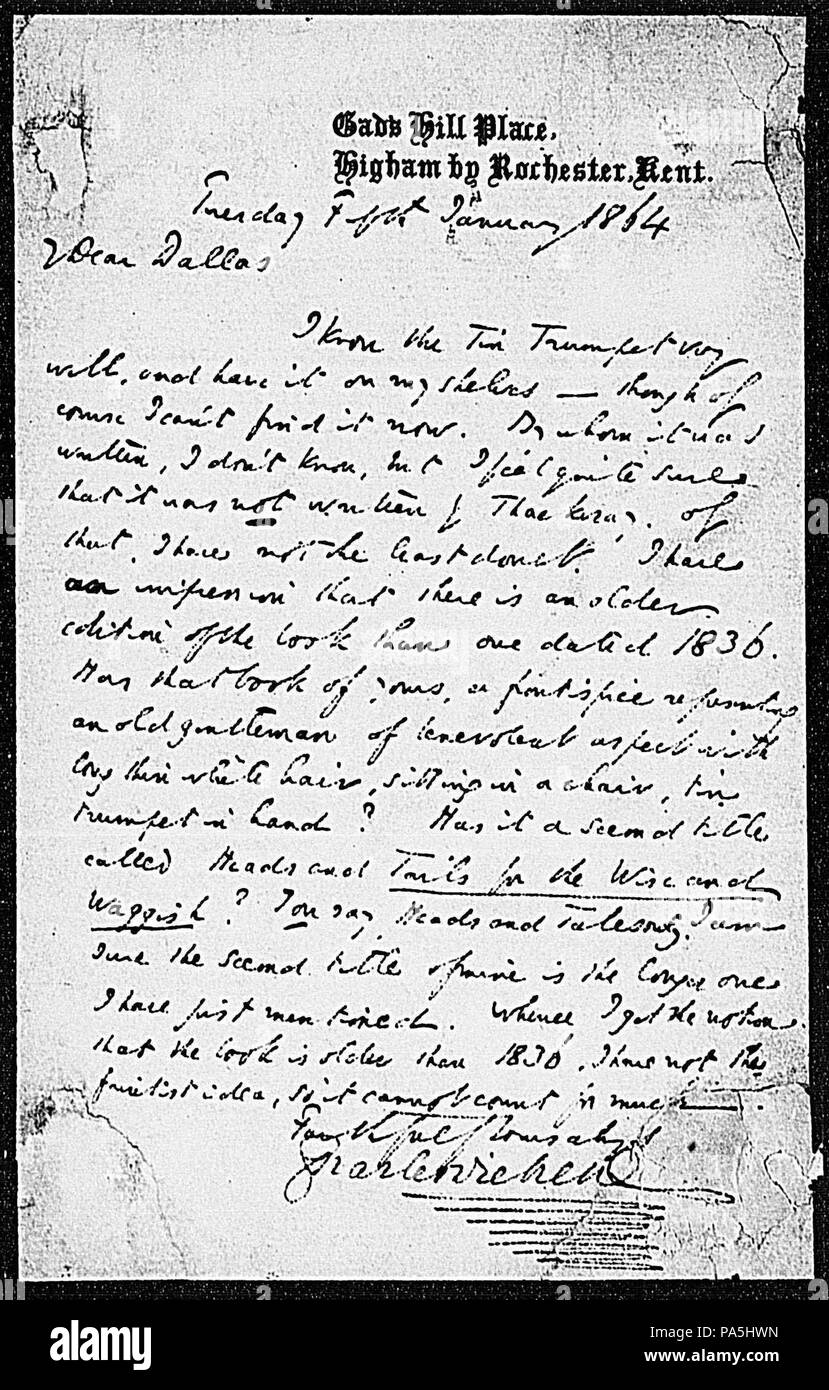 Gad's Hill Place,
Higham by Rochester, Kent.
Tuesday Fifth January 1864
My Dear Dallas
I know the Tin Trumpet very
well, and have it on my shelves — though of
course I can't find it now. By whom it was
written, I don't know, but I feel quite sure
that it was not written by Thackeray. Of
that, I have not the least doubt. I have
an impression that there is an older
edition of the book than one dated 1836.
Has that book of yours, a frontispiece representing
an old gentleman of benevolent aspect with
long thin white hair, sitting in a chair, tin
trumpet in hand? Has it a second title
called Heads and Tails for the Wise and
Waggish? You say Heads and Tales only. I am
sure the second title of mine is the longer one
I have just mentioned. Whence I got the notion
that the book is older than 1836, I have not the
faintest idea, so it cannot count for much.
Faithfully Yours always
Charles Dickens
alamy
Image ID: PA5HWN
www.alamy.com